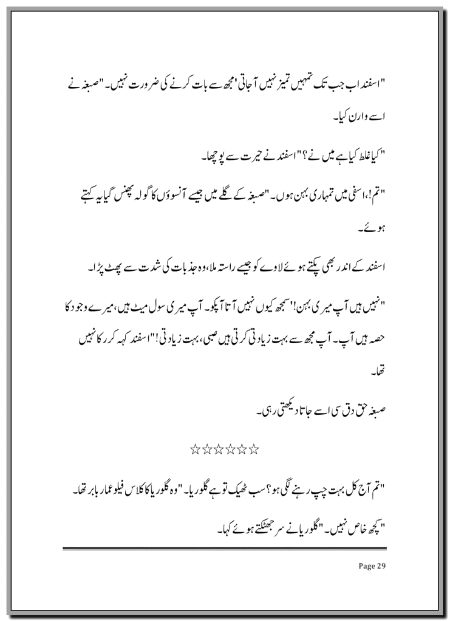 "اسفند اب جب تک تمہیں تمیز نہیں آ جاتی' مجھ سے بات کرنے کی ضرورت نہیں۔" صبغہ نے
اسے وارن کیا۔
"کیا غلط کیا ہے میں نے؟" اسفند نے حیرت سے پوچھا۔
"تم!، اسفی میں تمہاری بہن ہوں۔" صبغہ کے گلے میں جیسے آنسوؤں کا گولہ پھنس گیا یہ کہتے
ہوئے۔
اسفند کے اندر بھی پکتے ہوئے لاوے کو جیسے راستہ ملا، وہ جذبات کی شدت سے پھٹ پڑا۔
"نہیں ہیں آپ میری بہن!' سمجھ کیوں نہیں آتا آپکو۔ آپ میری سول میٹ ہیں، میرے وجود کا
حصہ ہیں آپ۔ آپ مجھ سے بہت زیادتی کرتی ہیں صبی، بہت زیادتی!" اسفند کہہ کر رکا نہیں
تھا۔
صبغہ حق دق سی اسے جاتا دیکھتی رہی۔
☆☆☆☆☆☆
"تم آج کل بہت چپ رہنے لگی ہو؟ سب ٹھیک تو ہے گلوریا۔" وہ گلوریا کا کلاس فیلو عمار بابر تھا۔
"کچھ خاص نہیں۔" گلوریا نے سر جھٹکتے ہوئے کہا۔
Page 29